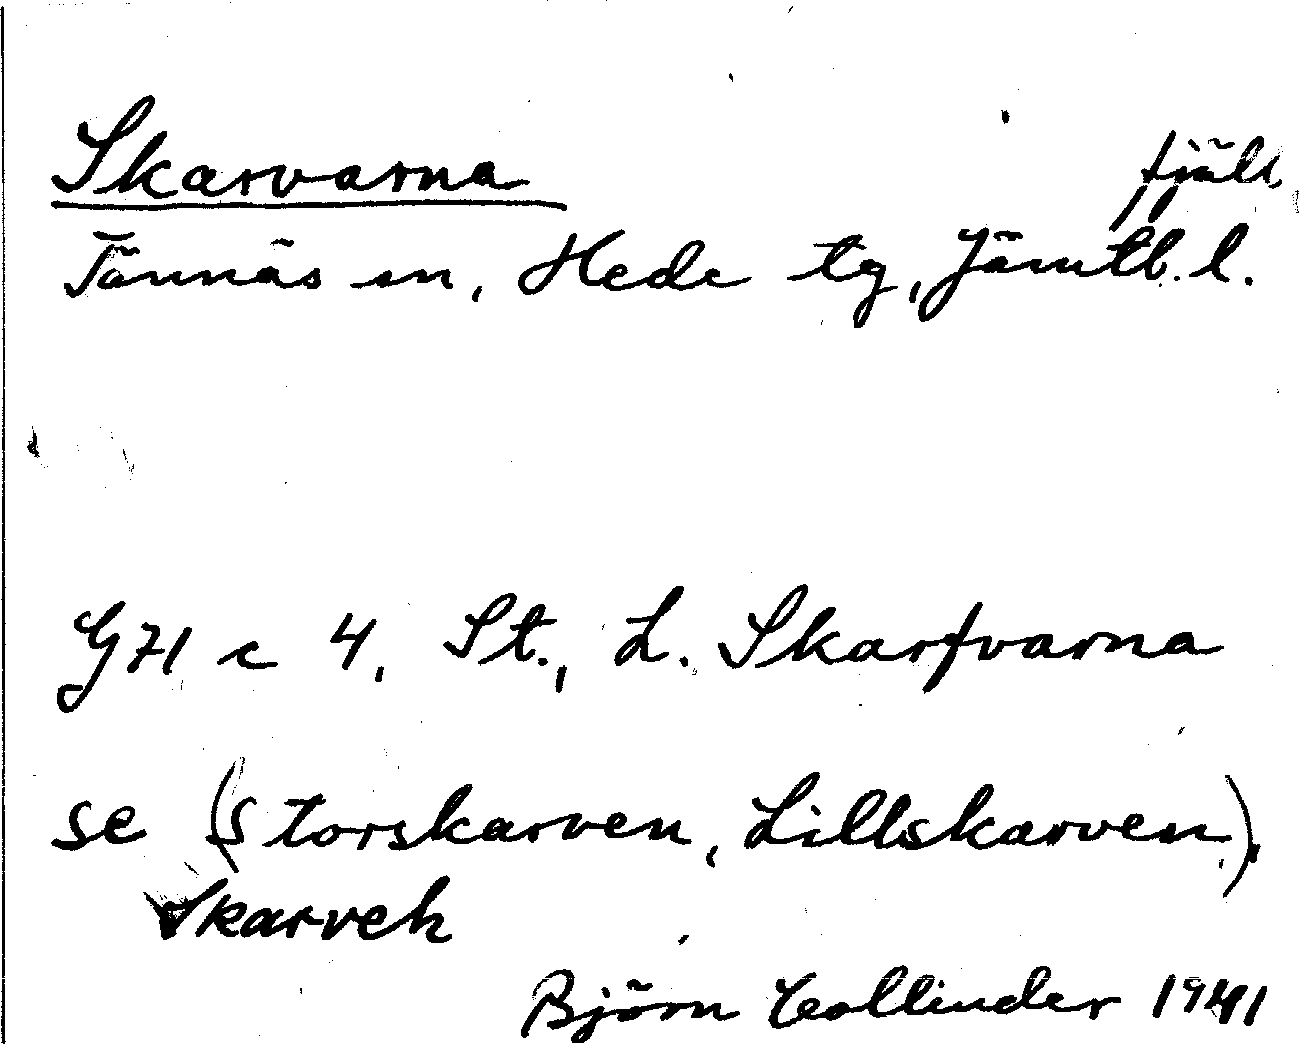 Skarvarna fjäll
Tännäs sn, Hede tg, Jämtl. l.
G71 c 4. St., L. Skarfvarna
se (Storskarven, Lillskarven).
Skarven
Björn Collinder 1941